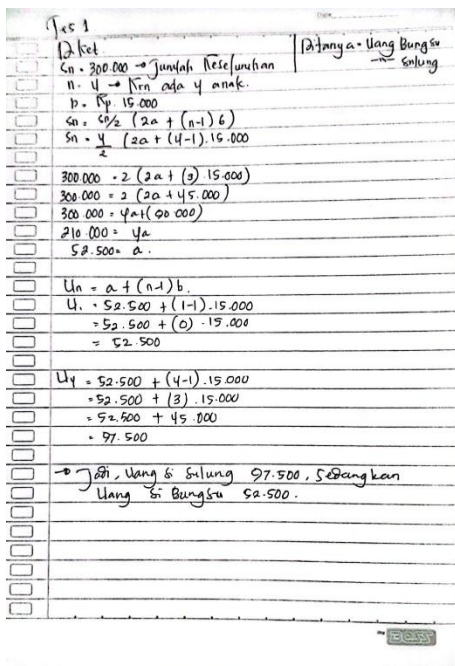 Tes 1
Diket
Ditanya = Uang Bungsu
Sulung
Sn = 300.000 → Jumlah Keseluruhan
n = 4 → Krn ada 4 anak.
b = Rp. 15.000
Sn = n/2 (2a + (n-1) b)
Sn = 4/2 (2a + (4-1).15.000
300.000 = 2 (2a + (3).15.000)
300.000 = 2 (2a + 45.000)
300.000 = 4a + (90.000)
210.000 = 4a
52.500 = a.
Un = a + (n-1) b.
U1 = 52.500 + (1-1).15.000
= 52.500 + (0).15.000
= 52.500
U4 = 52.500 + (4-1).15.000
= 52.500 + (3).15.000
= 52.500 + 45.000
= 97.500
→ Jadi, Uang si Sulung 97.500, Sedangkan
Uang si Bungsu 52.500.
BOSS